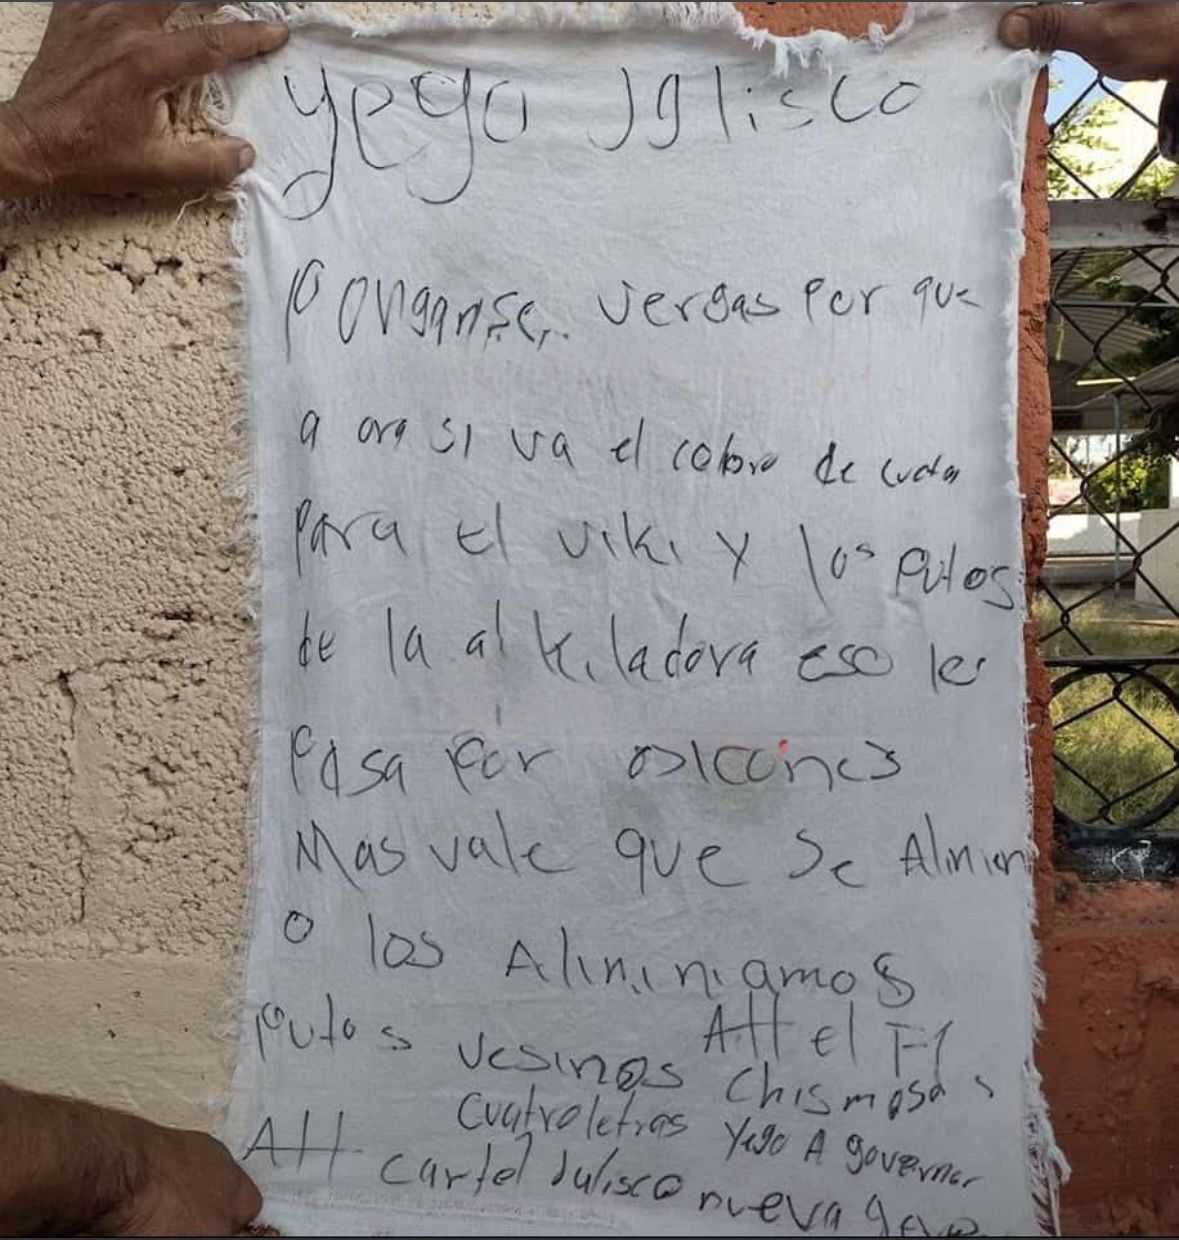 yego Jalisco
Ponganse vergas por que
a ora si va el cobro de cuota
para el viki y los putos
de la alkiladora eso les
pasa por oslcones
Mas vale que se Alinien
o los Alininiamos
putos Att el F1
vesinos chismosos
cuatroletras yego A governar
Att cartel Jalisco nueva